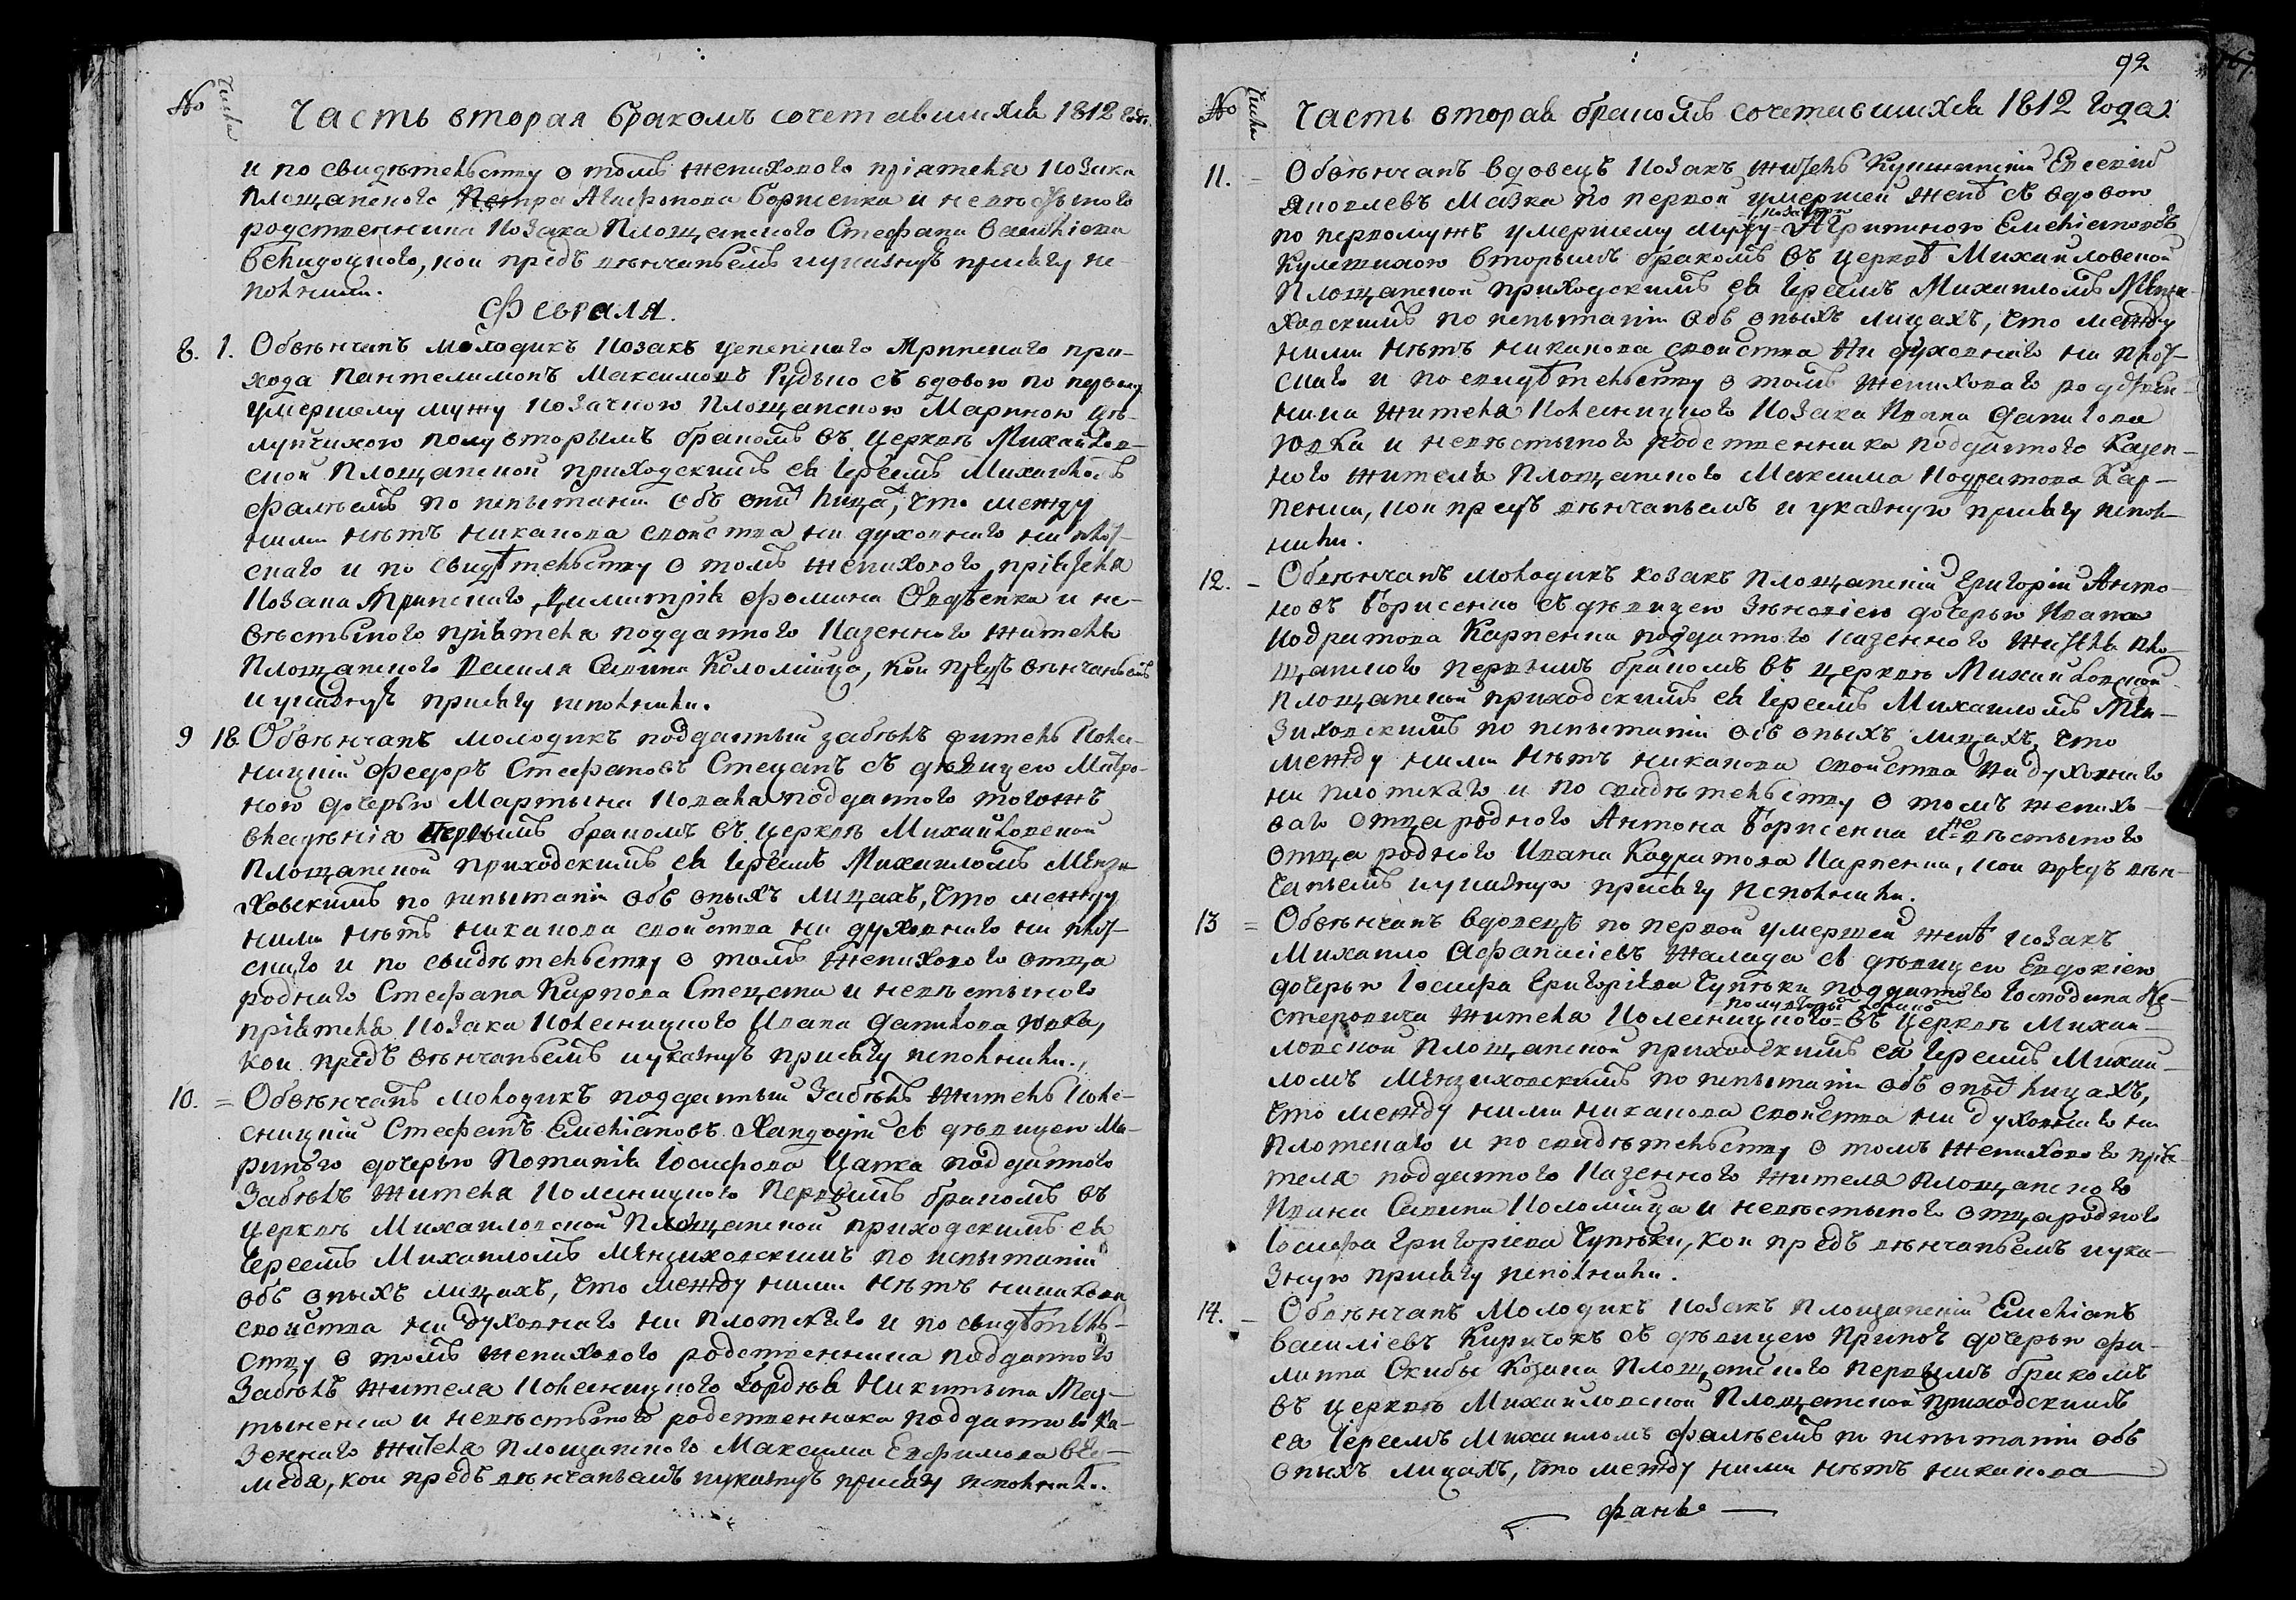 № Числа Часть вторая бракомъ сочетавшихся 1812 года
и по свидѣтельству о томъ женихового пріателя козака
Площанского Петра Агафонова Борисенка и невѣстыного
родственника козака Площанского Стефана Василіева
кои предъ вѣнчаньемъ иуказнуъ присягу ис-
полнили.
Февраля.
8. 1. Обвѣнчанъ молодикъ козакъ Трипского при-
хода Пантелимонъ Максимовъ Рудько съ вдовою по первому
умершему мужу козачкою Площанскою Мариною
полувторымъ бракомъ въ церквѣ Михайлов-
ской Площанской приходскимъ ея Іереемъ Михаиломъ
Фалѣемъ по испытаніи объ лица, что между
ними нѣтъ никакова свойства ни духовного ни плот-
скаго и по свидѣтельству о томъ женихового пріятеля
козака Димитрія Фомина Овдѣенка и не-
вѣстыного пріятеля подданного казенного жителя
Площанского Василя Савина Коломійца, кои предъ вѣнчаньемъ
иуказнуъ присягу исполнили.
9 18. Обвѣнчанъ молодикъ подданный Забѣлъ житель Колес-
ницкій Федоръ Стефановъ Стецанъ съ дѣвицею Матро-
ною дочерью Мартына Коваля подданного тогожъ
владѣнія первымъ бракомъ въ церквѣ Михайловской
Площанской приходскимъ ея Іереемъ Михаиломъ Мензи-
ховскимъ по испытаніи объ оныхъ лицахъ, что между
ними нѣтъ никакова свойства ни духовного ни плот-
скаго и по свидѣтельству о томъ женихового отца
родного Стефана Карпова Стецана и невѣстыного
пріятеля козака Колесницкого Ивана Данилова Юрка,
кои предъ вѣнчаньемъ иуказнуъ присягу исполнили.
10. = Обвѣнчанъ молодикъ подданный Забѣлъ житель Коле-
сницкій Стефанъ Емеліановъ съ дѣвицею Ма-
риною дочерью Потапія Іосифова Цапка подданного
Забѣлъ жителя Колесницкого первымъ бракомъ въ
церквѣ Михаиловской Площанской приходскимъ ея
Іереемъ Михаиломъ Мензиховскимъ по испытаніи
объ оныхъ лицахъ, что между ними нѣтъ никакова
свойства ни духовного ни плотского и по свидѣтель-
ству о томъ женихового родственника подданного
Забѣлъ жителя Колесницкого Гордѣя Никитина Мар-
тыненка и невѣстыного родственника подданного Ка-
зенного жителя Площанского Максима Евфимова Ве-
медя, кои предъ вѣнчаньемъ иуказнуъ присягу исполнил.
92
№ Числа Часть вторая бракомъ сочетавшихся 1812 года
11. = Обвѣнчанъ вдовецъ козакъ житель Евсевій
Яковлевъ Мазка по первой умершей женѣ съ вдовою
по первомужъ умершему мужу козачкою Агрипиною Емеліановою
Кулешихою вторымъ бракомъ въ церквѣ Михайловской
Площанской приходскимъ ея Іереемъ Михаиломъ Мензи-
ховскимъ по испытаніи объ оныхъ лицахъ, что между
ними нѣтъ никакова свойства ни духовного ни плот-
скаго и по свидѣтельству о томъ женихового родствен-
ника жителя Колесницкого козака Ивана Данилова
Юрка и невѣстыного родственника подданного Казен-
ного жителя Площанского Максима Кодратова Кар-
пенка, кои предъ вѣнчаньемъ и указную присягу испол-
нили.
12. - Обвѣнчанъ молодикъ козакъ Площанскій Григорій Анто-
новъ Борисенко съ дѣвицею Зѣновіею дочерью Ивана
Кодратова Карпенка подданного казенного жителя Пло-
щанского первымъ бракомъ въ церквѣ Михайловской
Площанской приходскимъ ея Іереемъ Михаиломъ Мен-
зиховскимъ по испытаніи объ оныхъ лицахъ, что
между ними нѣтъ никакова свойства ни духовного
ни плотскаго и по свидѣтельству о томъ женихо-
ваго отца родного Антона Борисенка и не-вѣстыного
отца родного Ивана Кодратова Карпенка, кои предъ вѣн-
чаньемъ иуказную присягу исполнили.
13 = Обвѣнчанъ вдовецъ по первой умершей женѣ козакъ
Михаило Афанасіевъ Жалада съ дѣвицею Евдокіею
дочерью Іосифа Григоріева Чупѣки подданного господина Не-
стеровича жителя Колесницкого полувторымъ бракомъ въ церквѣ Михаи-
ловской Площанской приходскимъ ея Іереемъ Михаи-
ломъ Мензиховскимъ по испытаніи объ оныхъ лицахъ,
что между ними никакова свойства ни духовного ни
плотского и по свидѣтельству о томъ женихового прія-
теля подданного казенного жителя Площанского
Ивана Савина Коломійца и невѣстыного отцародного
Іосифа Григоріева Чупѣки, кои предъ вѣнчаньемъ иука-
зную присягу исполнили.
14. - Обвѣнчанъ молодикъ козакъ Площанскій Емеліанъ
Василіевъ Киричокъ съ дѣвицею Ириною дочерью Фи-
липпа Скибы козака Площанского первымъ бракомъ
въ церквѣ Михайловской Площанской приходскимъ
ея Іереемъ Михаиломъ Фалѣемъ по испытаніи объ
оныхъ лицахъ, что между ними нѣтъ никакова